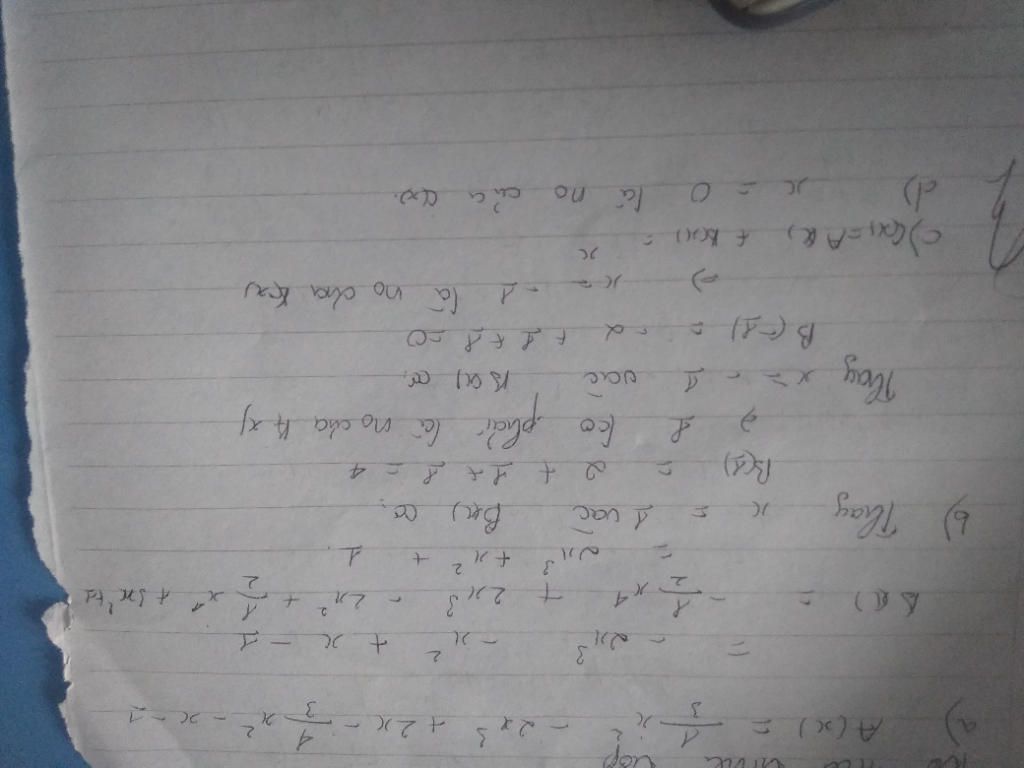 a) A(x) = 1/3 x² - 2x³ + 2x - 4/3 x² - x - 1
= - 2x³ - x² + x - 1
B(x) = - 1/2 x⁴ + 2x³ - 2x² + 1/2 x⁴ + 3x² + 1
= 2x³ + x² + 1
b) Thay x = 1 vào B(x) có:
B(1) = 2 + 1 + 1 = 4
=> 1 ko phải là no của
Thay x = - 1 vào B(x) có:
B(-1) = - 2 + 1 + 1 = 0
=> x = - 1 là no của B(x)
c) C(x) = A(x) + B(x) = x
d) x = 0 là no của C(x).